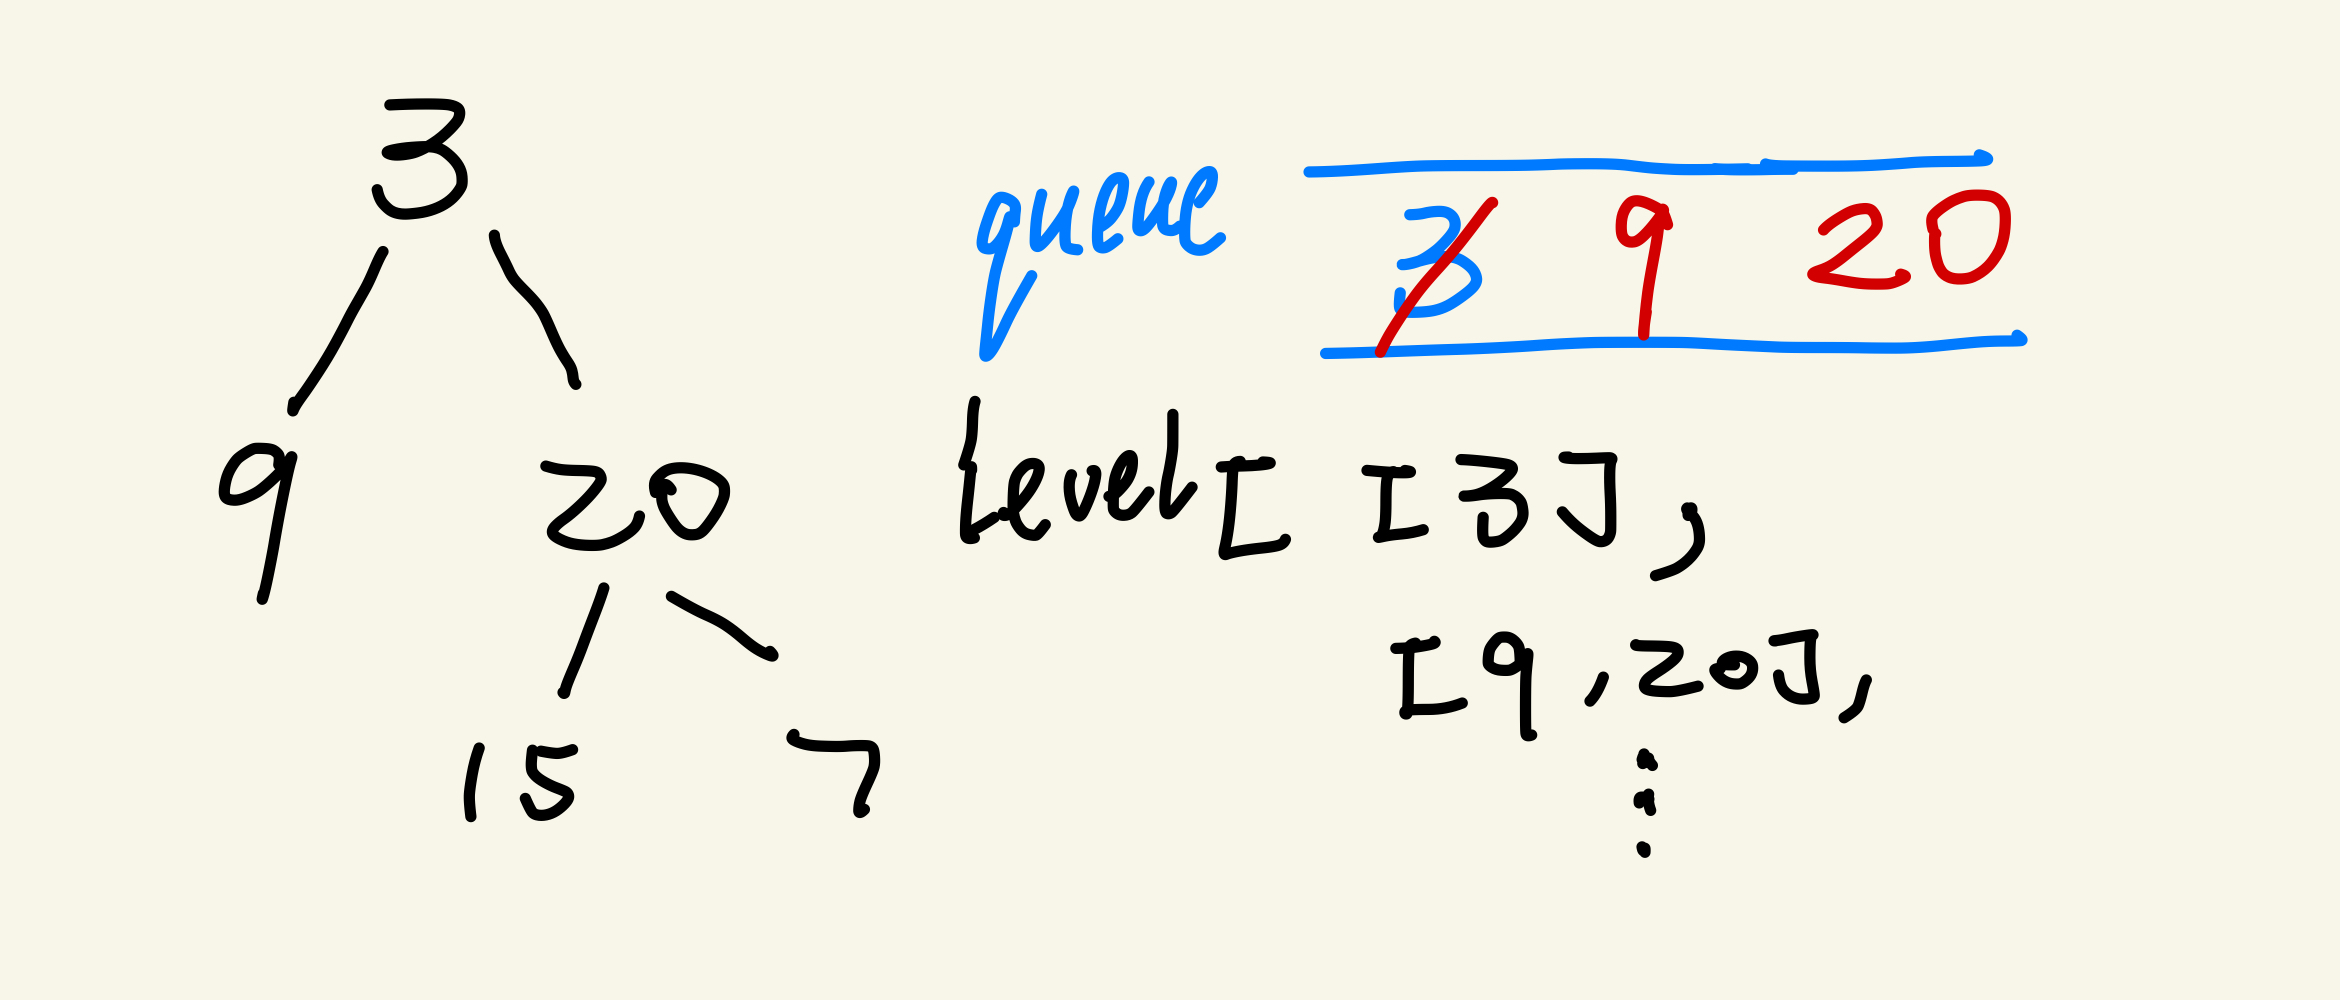 3
9 20
15 7
queue 3 9 20
level[ [3],
[9,20],
⋮